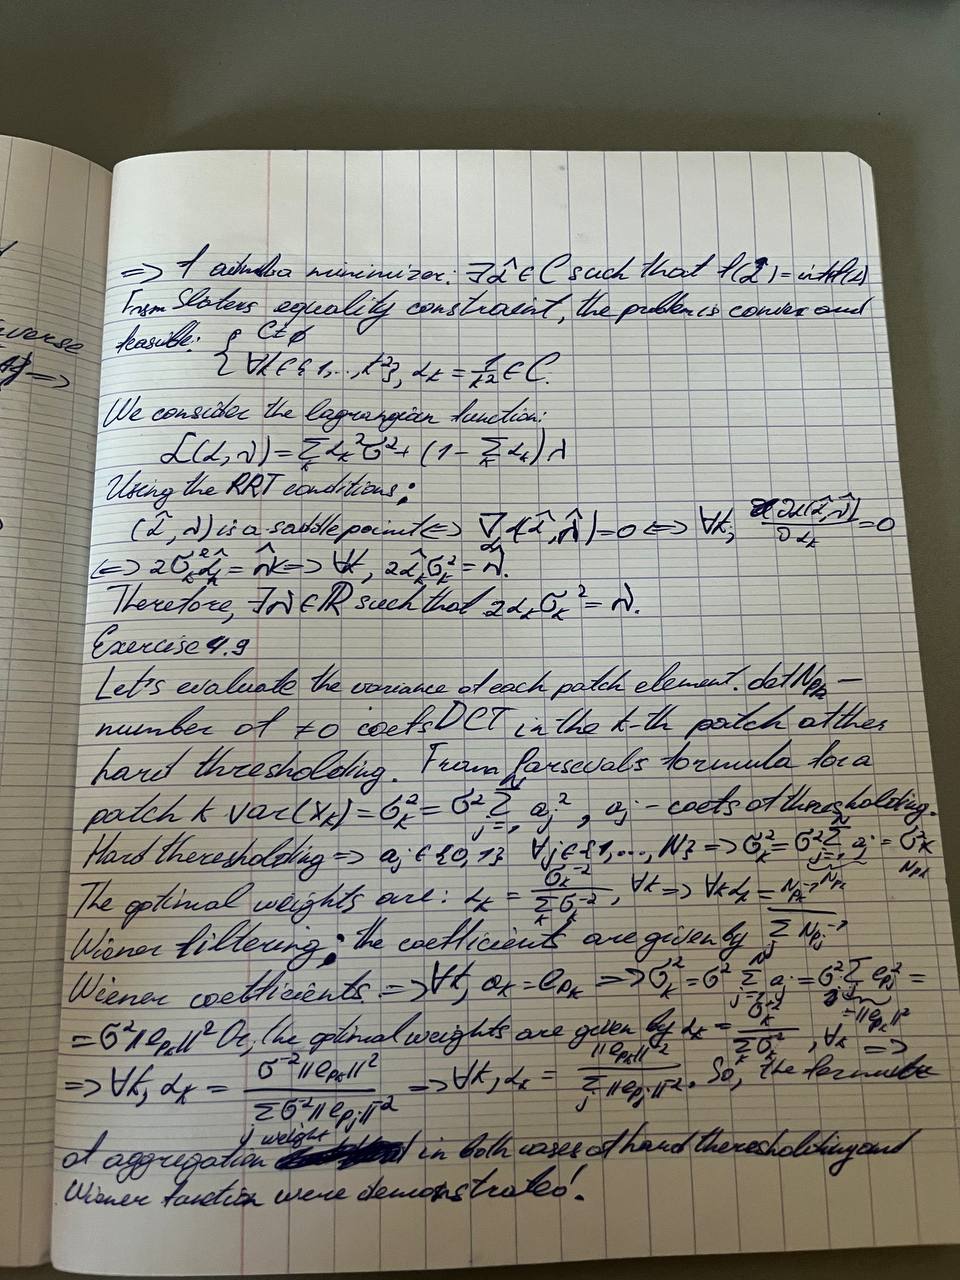 => f admits a minimizer: ∃ α̂ ∈ C such that f(α̂) = inf f(α)
From Slaters equality constraint, the problem is convex and
feasible: { C ≠ ∅
∀k ∈ {1,..., k²}, α_k = 1/k² ∈ C.
We consider the lagrangian function:
L(α, λ) = Σ_k α_k² σ² + (1 - Σ_k α_k) λ
Using the RRT conditions:
(α̂, λ) is a saddle point <=> ∇_α L(α̂, λ̂) = 0 <=> ∀k, ∂L(α̂, λ̂)/∂α_k = 0
<=> 2σ_k² α̂_k = λ̂ <=> ∀k, 2α̂_k σ_k² = λ̂.
Therefore, ∃ λ ∈ ℝ such that 2α_k σ_k² = λ.
Exercise 4.9
Let's evaluate the variance of each patch element. let N_Pk –
number of ≠0 coefs DCT in the k-th patch after
hard thresholding. From Parseval's formula for a
patch k var(X_k) = σ_k² = σ² Σ_{j=1}^N a_j², a_j – coefs of theresholding.
Hard theresholding => a_j ∈ {0,1} ∀j ∈ {1,..., N} => σ_k² = σ² Σ_{j=1}^N a_j = σ_k² N_Pk
The optimal weights are: α_k = σ_k^-2 / Σ_k σ_k^-2, ∀k => ∀k α_k = N_Pk^-1 / Σ_j N_Pj^-1
Wiener filtering: the coefficients are given by
Wiener coefficients. => ∀k, a_k = e_Pk => σ_k² = σ² Σ_{j=1}^N a_j² = σ² Σ e_Pj² =
= σ² ||e_Pk||² Or, the optimal weights are given by α_k = σ_k^-2 / Σ_k σ_k^-2, ∀k =>
=> ∀k, α_k = σ^-2 ||e_Pk||^2 / Σ_j σ^2 ||e_Pj||^-2 => ∀k, α_k = ||e_Pk||^-2 / Σ_j ||e_Pj||^-2. So, the formula
of aggregation weight in both cases of hard theresholding and
Wiener function were demonstrated!